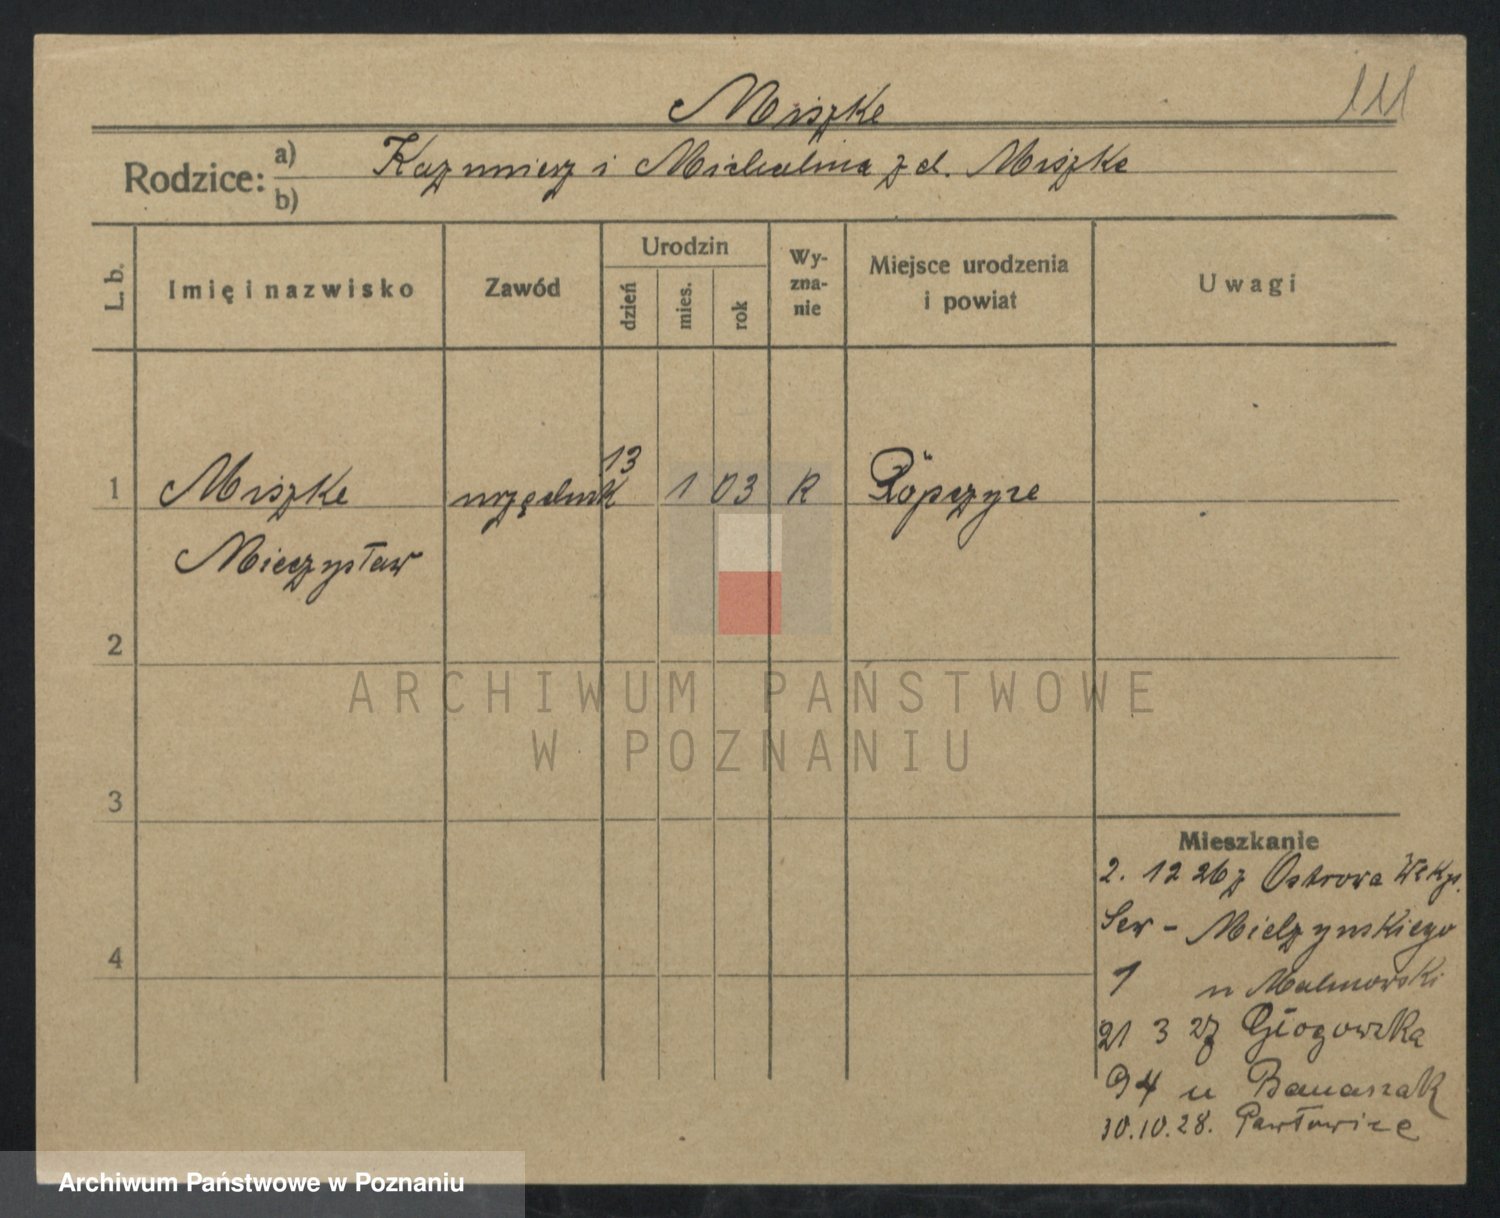 Miszke
Rodzice: a) Kazmierz i Michalina z d. Miszke
b)
L. b.
Imię i nazwisko
Zawód
Urodzin
dzień
mies.
rok
Wy-
zna-
nie
Miejsce urodzenia
i powiat
Uwagi
13
1 Miszke urzędnik 1 03 R
Mieczysław
2
3
4
Mieszkanie
2. 12 26 z Ostrowa Wlkp.
Sew - Mielzynskiego
1 u Malinowski
21 3 27 Głogowska
94 u Banaszak
30.10.28. Pawłowice
ARCHIWUM PAŃSTWOWE
W POZNANIU
Archiwum Państwowe w Poznaniu